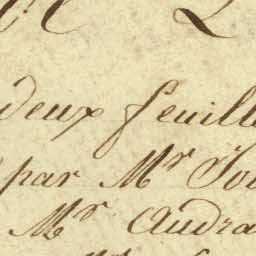 deux feuill
par Mr Jou
Mr Audra